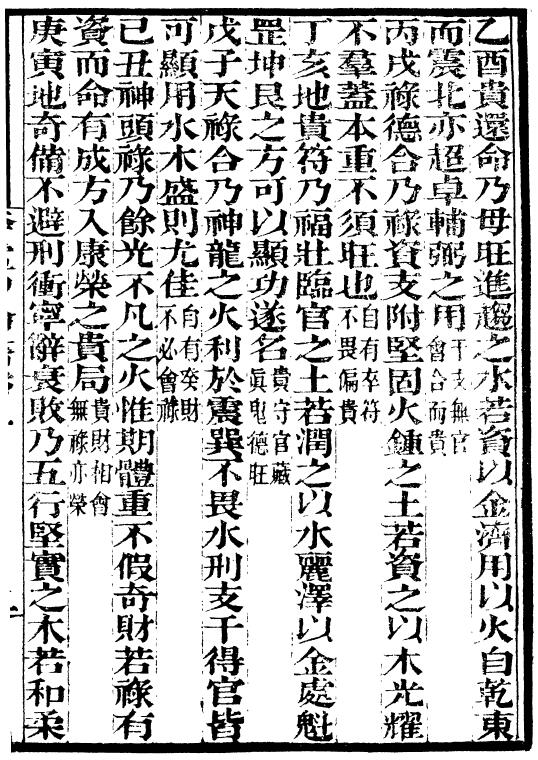 乙酉貴還命乃母旺進趨之水若資以金濟用以火自乾東
而震北亦超卓輔弼之用干支無官會合而貴
丙戌祿德合乃祿資支附堅固火鍾之土若資之以木光耀
不羣蓋本重不須旺也自有卒符不畏偏貴
丁亥地貴符乃福壯臨官之土若潤之以水麗澤以金處魁
罡坤艮之方可以顯功遂名貴守官藏眞鬼德旺
戊子天祿合乃神龍之火利於震巽不畏水刑支干得官皆
可顯用水木盛則尤佳自有癸財不必會祿
己丑神頭祿乃餘光不凡之火惟期體重不假奇財若祿有
資而命有成方入康榮之貴局貴財相會無祿亦榮
庚寅地奇備不避刑衝寧辭衰敗乃五行堅實之木若和柔